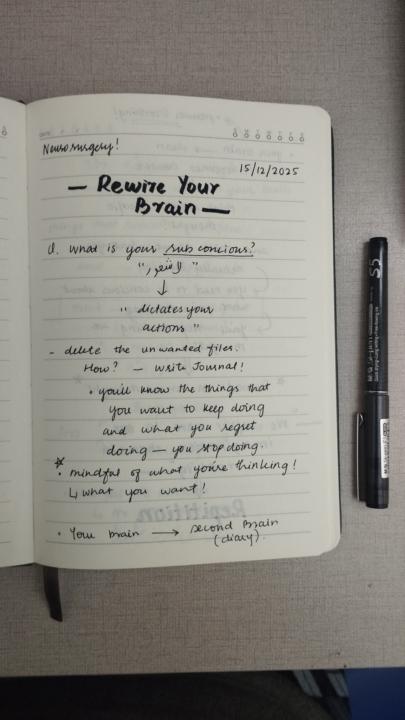 Neurosurgery!
15/12/2025
— Rewire Your
Brain —
Q. What is your sub concious?
"لاشعور"
↓
" dictates your
actions "
- delete the unwanted files.
How? — Write Journal!
• you'll know the things that
you want to keep doing
and what you regret
doing — you stop doing.
*
• mindful of what you're thinking!
↳ what you want!
• Your brain → second Brain
(diary).
S5